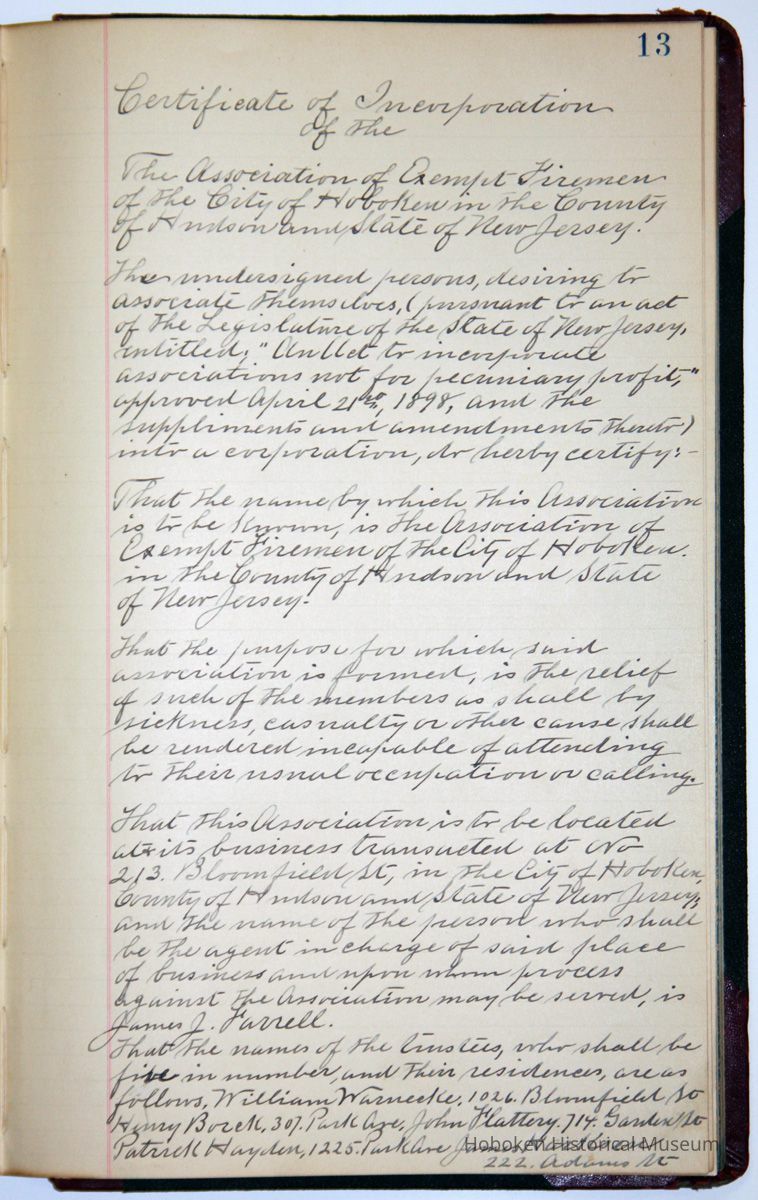 13
Certificate of Incorporation
of the
The Association of Exempt Firemen
of the City of Hoboken in the County
of Hudson and State of New Jersey.
The undersigned persons, desiring to
associate themselves, (pursuant to an act
of the Legislature of the State of New Jersey,
entitled; "An Act to incorporate
associations not for pecuniary profit,"
approved April 21st, 1898, and the
suppliments and amendments thereto)
into a corporation, do herby certify:-
That the name by which this Association
is to be known, is the Association of
Exempt Firemen of the City of Hoboken.
in the County of Hudson and State
of New Jersey.
That the purpose for which said
association is formed, is the relief
of such of the members as shall by
sickness, casualty or other cause shall
be rendered incapable of attending
to their usual occupation or calling.
That this Association is to be located
at its business transacted at No
213. Bloomfield St, in the City of Hoboken,
County of Hudson and State of New Jersey,
and the name of the person who shall
be the agent in charge of said place
of business and upon whom process
against the Association may be served, is
James J. Farrell.
That the names of the trustees, who shall be
five in number, and their residences, are as
follows, William Warnecke. 1026. Bloomfield St
Henry Borck. 307. Park Ave. John Flattery. 714. Garden St
Patrick Hayden, 1225. Park Ave James
Hoboken Historical Museum
222. Adams St